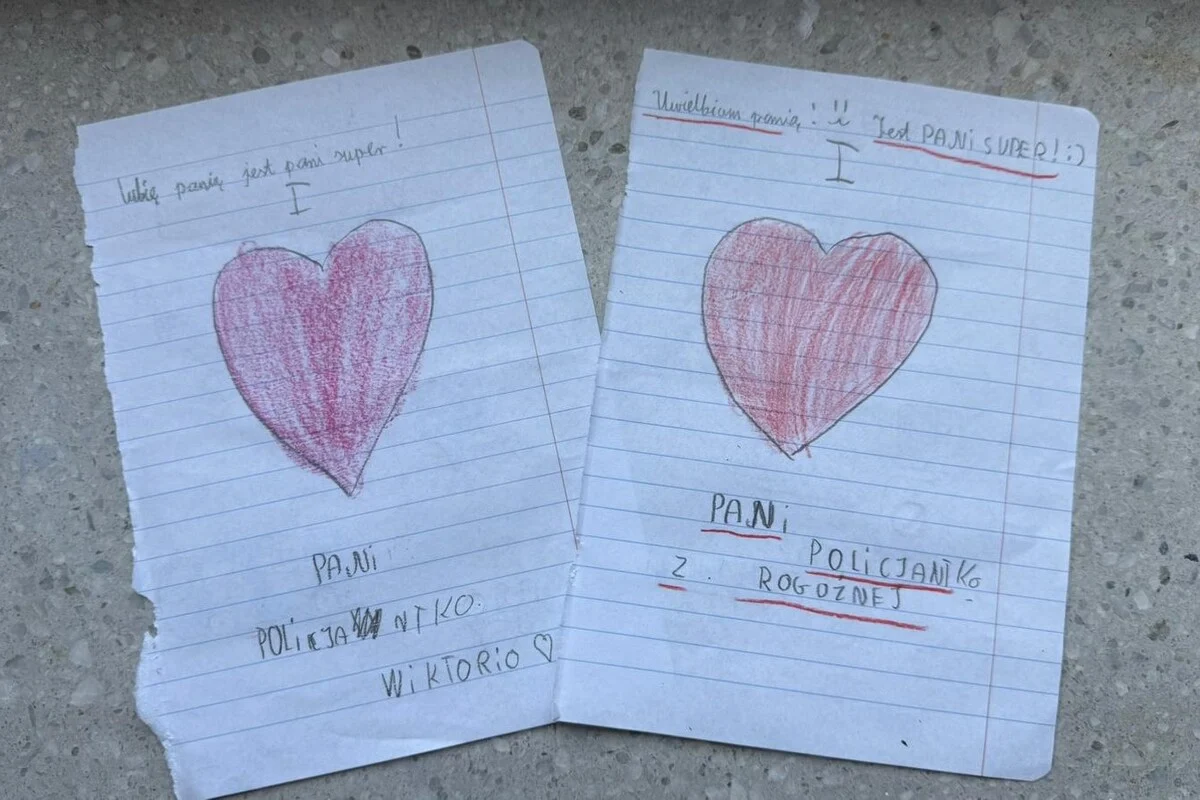 lubię panią jest pani super!
I
PANi
POLiCJANTKO
WiKTORiO ♡
Uwielbiam panią! Jest PANi SUPER! :)
I
PANi
POLiCJANTKo
Z ROGOŹNEJ